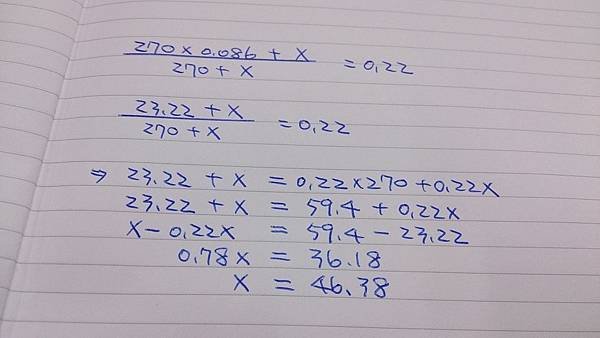 270 × 0.086 + X / 270 + X = 0.22
23.22 + X / 270 + X = 0.22
⇒ 23.22 + X = 0.22×270 + 0.22X
23.22 + X = 59.4 + 0.22X
X - 0.22X = 59.4 - 23.22
0.78X = 36.18
X = 46.38